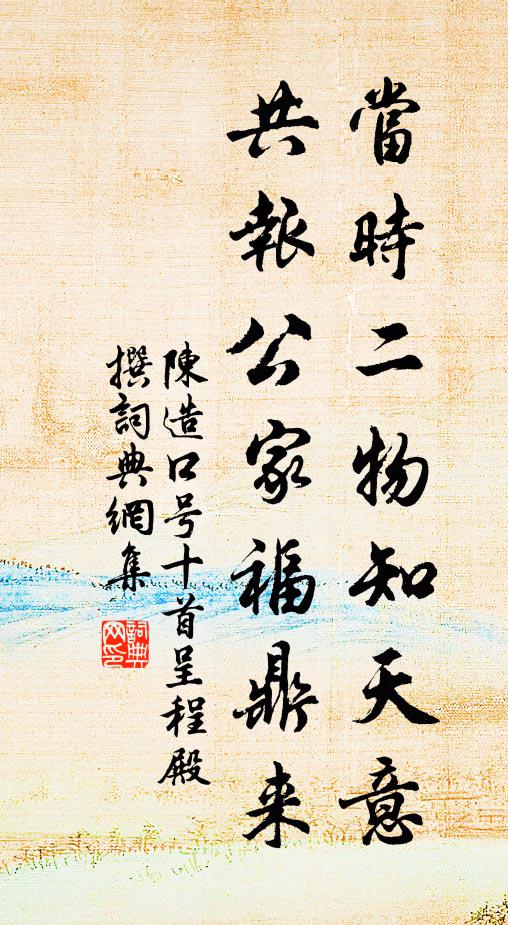 當時二物知天意
共報公家福鼎来
陳造口号十首呈程殿
撰詞典網集
詞典
网印